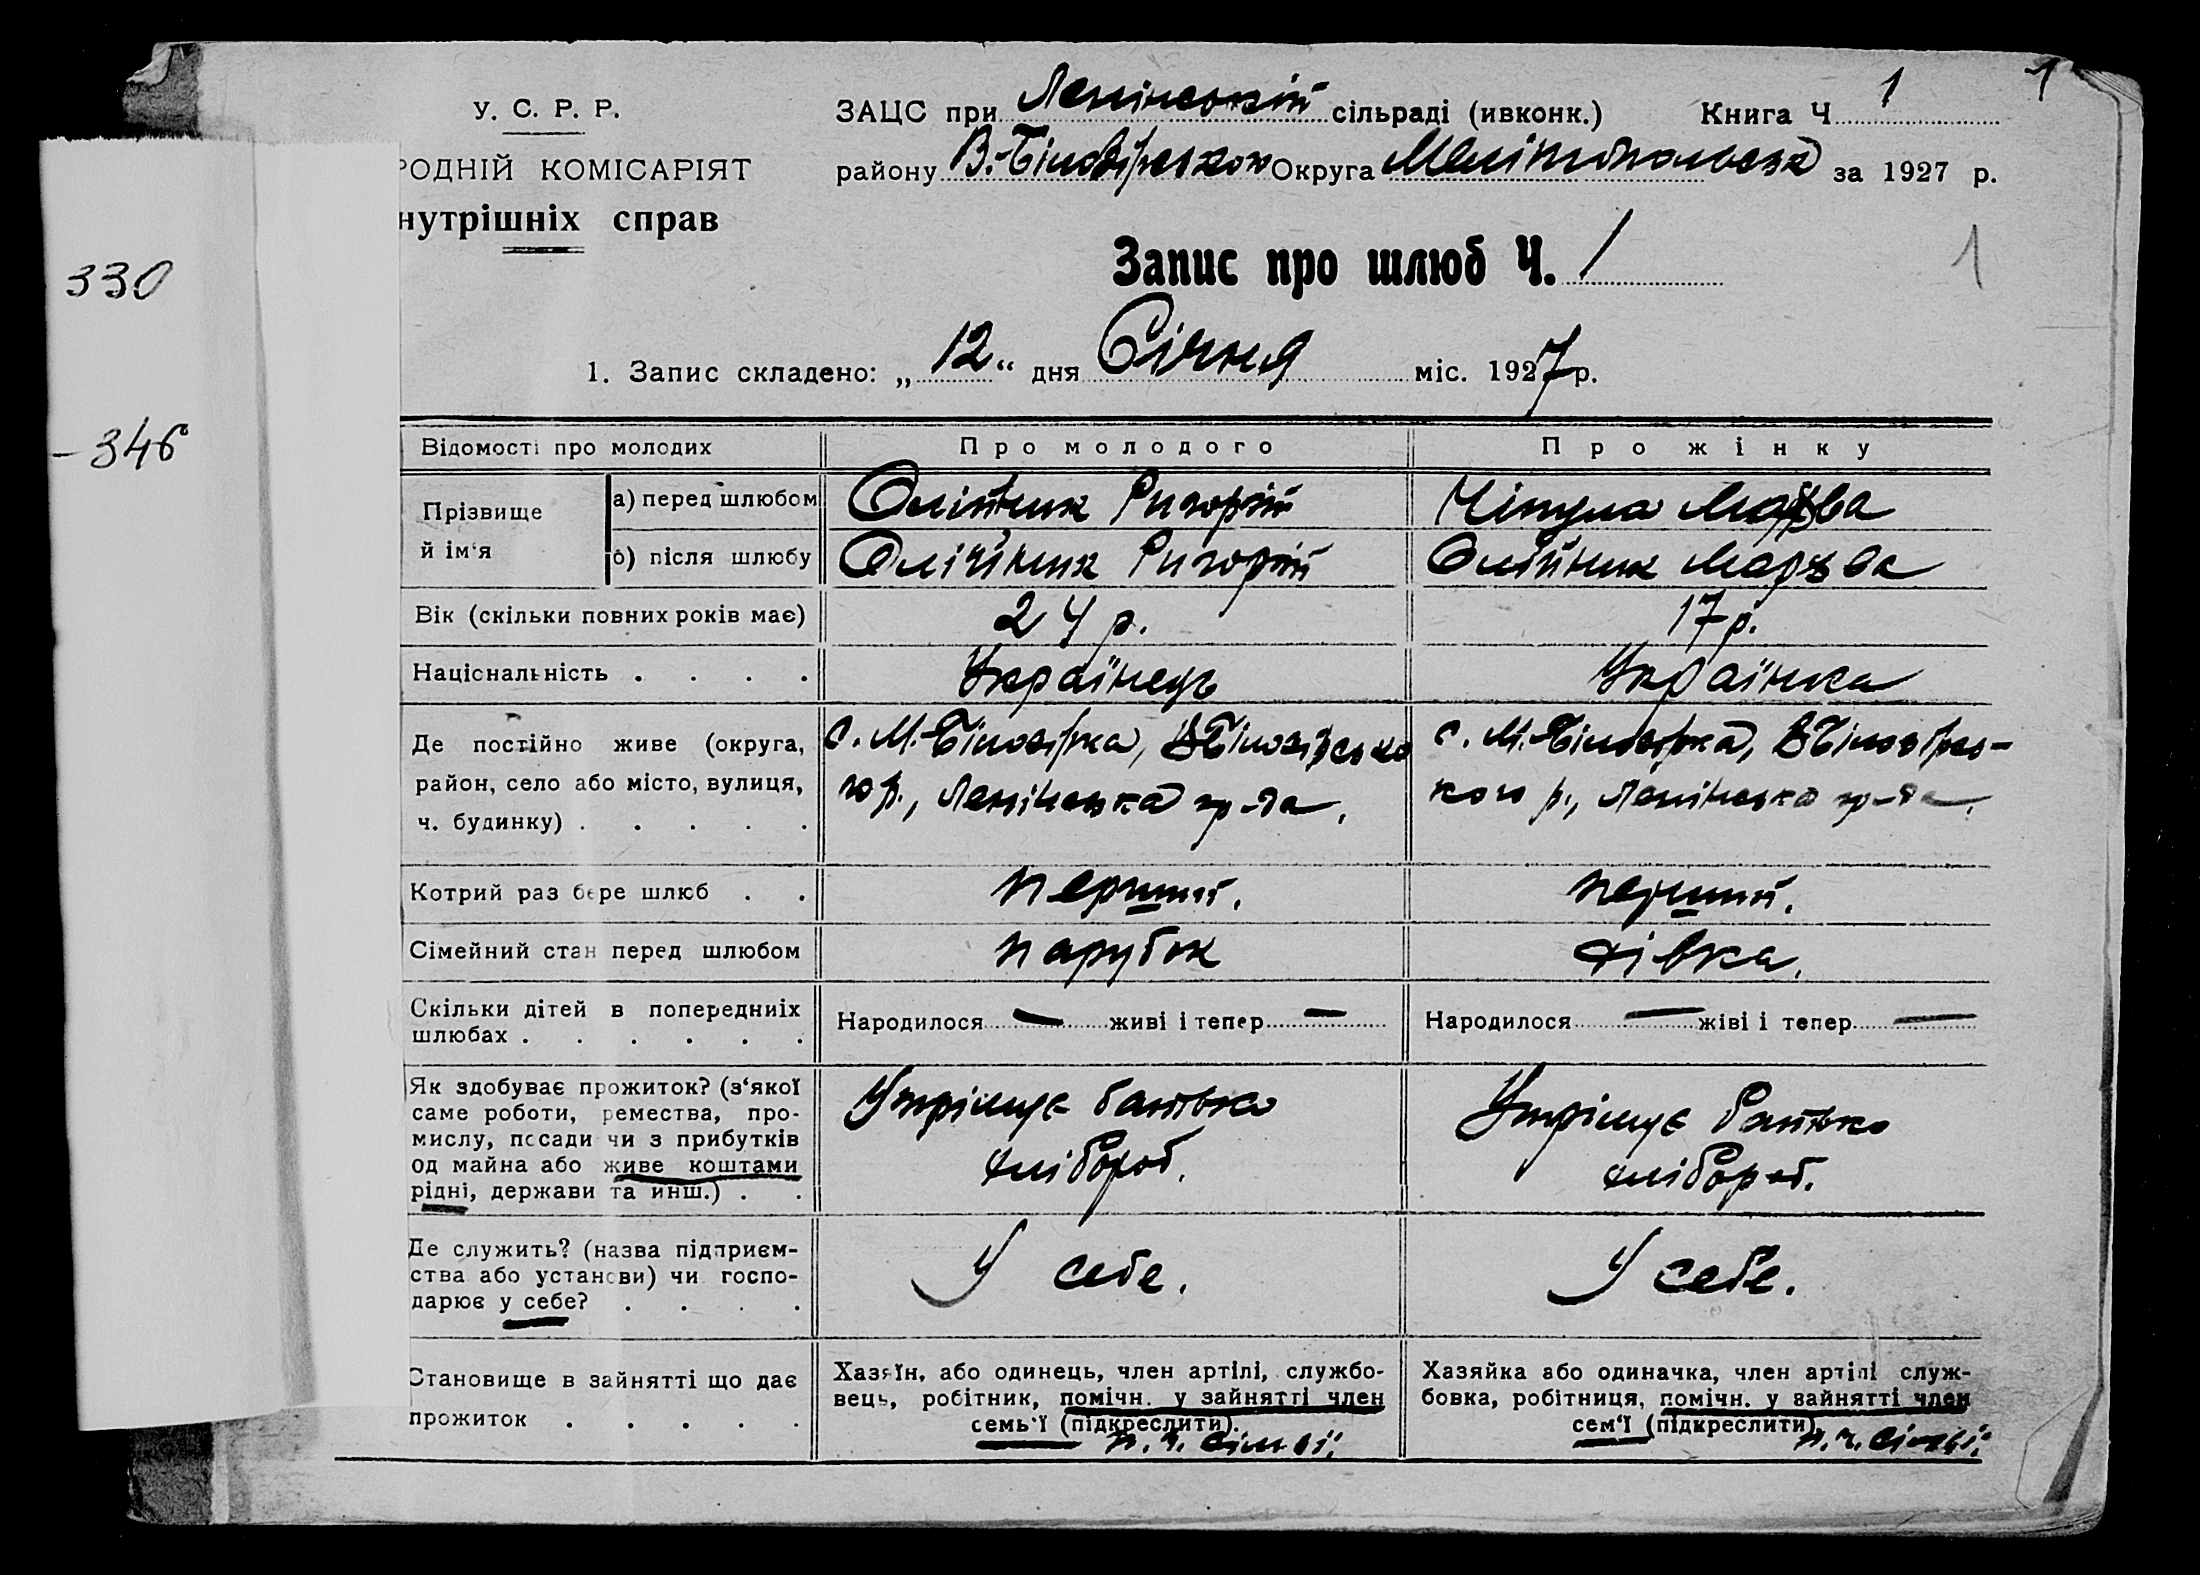 1
1
У. С. Р. Р.
ЗАЦС при Ленінській сільраді (ивконк.) Книга Ч 1
РОДНІЙ КОМІСАРІЯТ
району В.-Білозірсько Округа Мелітопольська за 1927 р.
нутрішніх справ
330
Запис про шлюб Ч. 1
1. Запис складено: „12“ дня Січня міс. 1927 р.
- 346
Відомості про молодих
Про молодого
Про жінку
Прізвище й ім‘я
а) перед шлюбом
Олійник Ригорій
Чіпула
б) після шлюбу
Олійник Ригорій
Олійник
Вік (скільки повних років має)
24 р.
17 р.
Національність . . . .
Українець
Українка
Де постійно живе (округа,
район, село або місто, вулиця,
ч. будинку) . . . . .
с. М.-Білозірка, ВБілозірсько
го р., Ленінська гр-да,
с. М.-Білозірка, ВБілозірсь-
кого р., Ленінська гр-да.
Котрий раз бере шлюб . .
перший.
перший.
Сімейний стан перед шлюбом
парубок
дівка.
Скільки дітей в попередниіх
шлюбах . . . . . .
Народилося — живі і тепер —
Народилося — жіві і тепер —
Як здобуває прожиток? (з‘якої
саме роботи, ремества, про-
мислу, посади чи з прибутків
од майна або живе коштами
рідні, держави та инш.) . .
Утрімує батько
хлібороб.
Утрімує батько
хлібороб.
Де служить? (назва підприєм-
ства або установи) чи госпо-
дарює у себе? . . . .
У себе.
У себе.
Становище в зайнятті що дає
прожиток . . . . .
Хазяїн, або одинець, член артілі, службо-
вець, робітник, помічн. у зайнятті член
семь‘ї (підкреслити).
п. ч. сімьі.
Хазяйка або одиначка, член артілі служ-
бовка, робітниця, помічн. у зайнятті член
сем‘ї (підкреслити)
п. ч. сімьі.